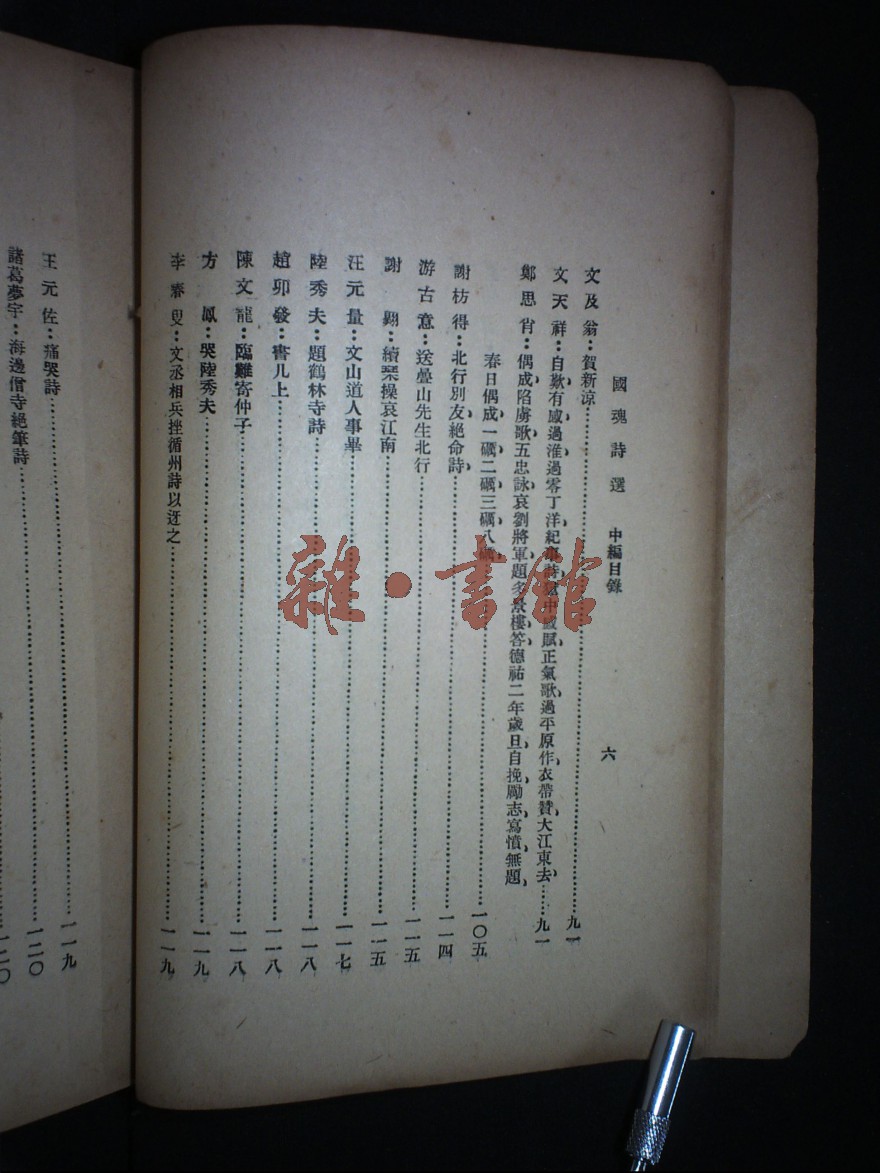 國魂詩選 中編目錄 六
文及翁：賀新涼 九一
文天祥：自歎有感過淮過零丁洋紀事 中 賦正氣歌過平原作衣帶贊大江東去 九一
鄭思肖：偶成陷虜歌五忠詠哀劉將軍題多景樓答德祐二年歲旦自挽勵志寫憤無題
春日偶成一礪二礪三礪八礪 一〇五
謝枋得：北行別友絕命詩 一一四
游古意：送疊山先生北行 一一五
謝翱：續琴操哀江南 一一五
汪元量：文山道人事畢 一一七
陸秀夫：題鶴林寺詩 一一八
趙卯發：書几上 一一八
陳文龍：臨難寄仲子 一一八
方鳳：哭陸秀夫 一一九
李春叟：文丞相兵挫循州詩以迓之 一一九
王元佐：痛哭詩 一一九
諸葛夢宇：海邊僧寺絕筆詩 一二〇
一二〇
雜·書館